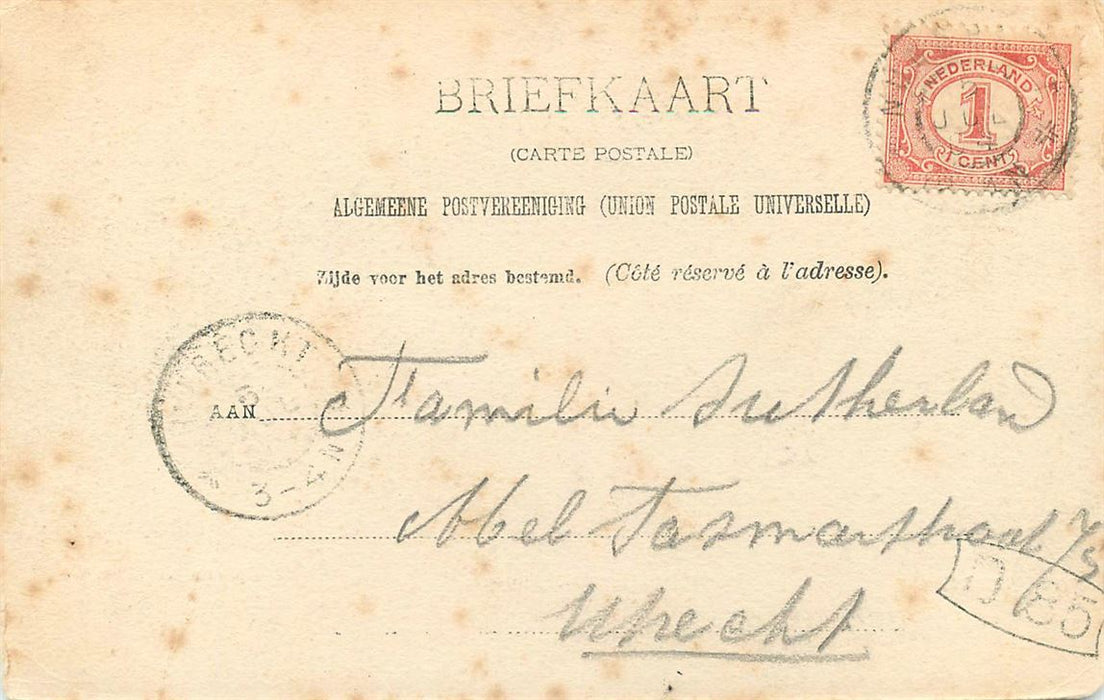 BRIEFKAART
(CARTE POSTALE)
ALGEMEENE POSTVEREENIGING (UNION POSTALE UNIVERSELLE)
Zijde voor het adres bestemd. (Côté réservé à l'adresse).
NEDERLAND
1
1 CENT
UTRECHT
3-4 N
AAN Familie Sutherland
Abel Tasmanstraat
Utrecht
D 85